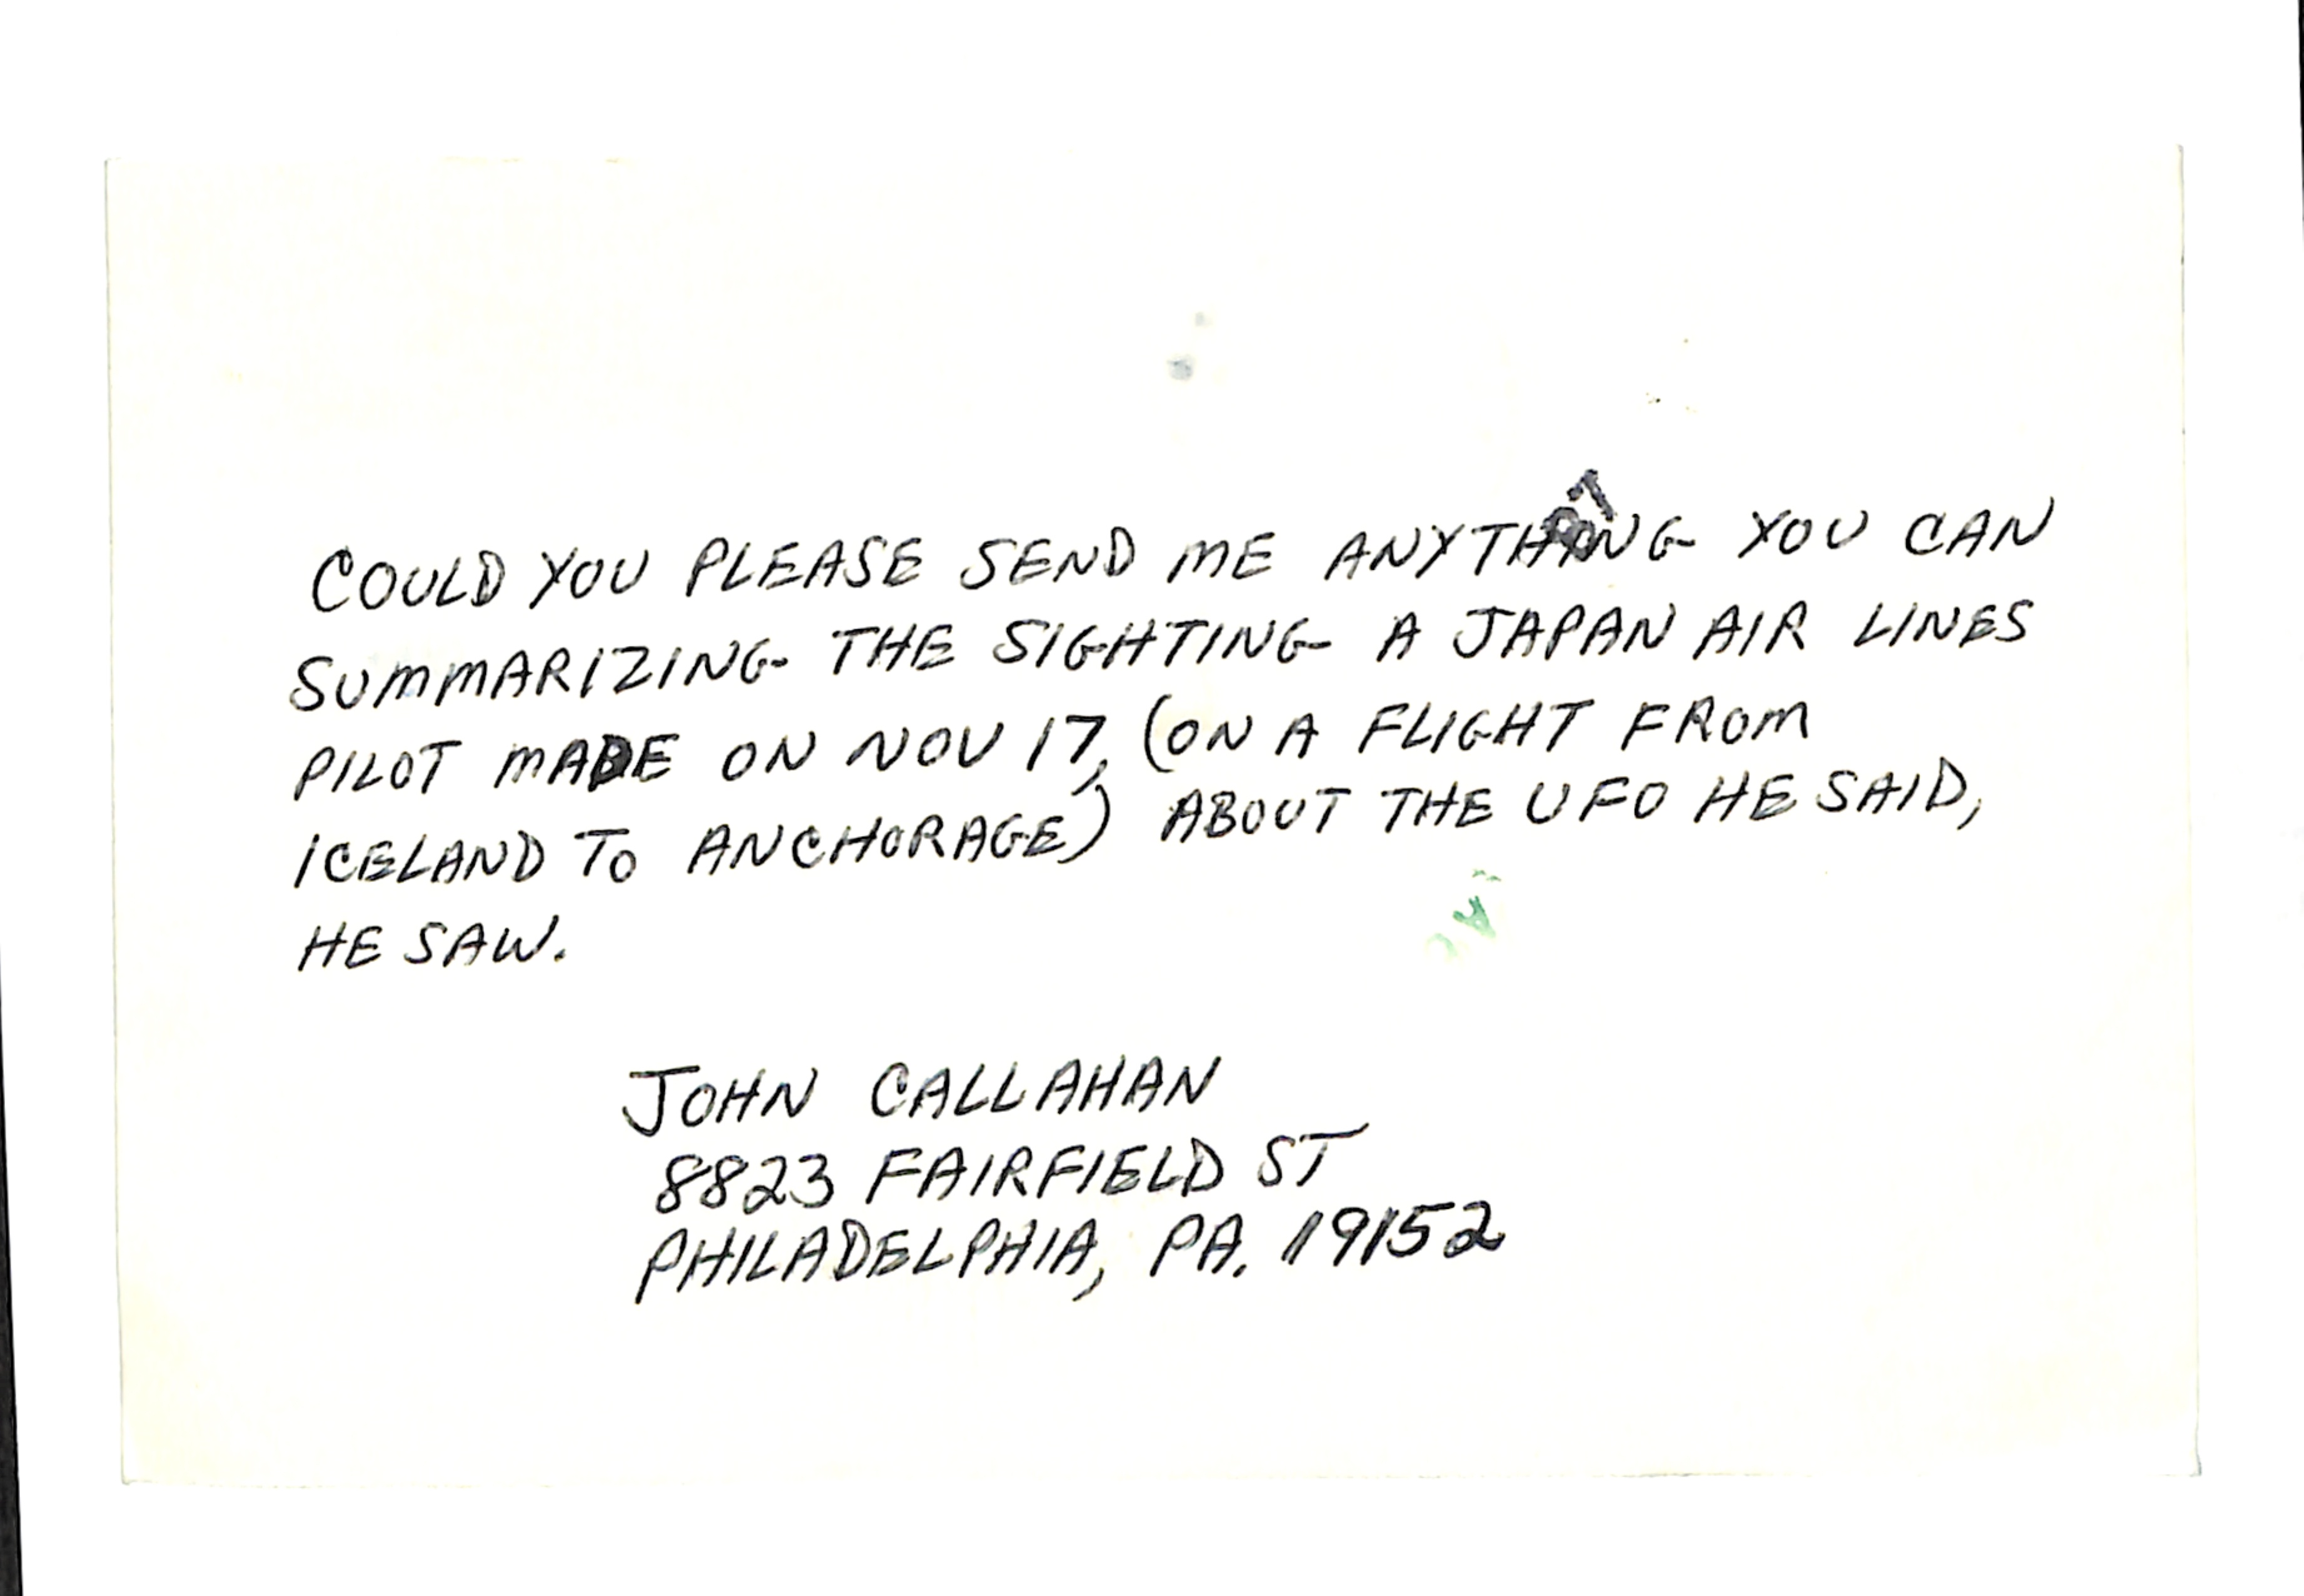 COULD YOU PLEASE SEND ME ANYTHING YOU CAN
SUMMARIZING THE SIGHTING A JAPAN AIR LINES
PILOT MADE ON NOV 17, (ON A FLIGHT FROM
ICELAND TO ANCHORAGE) ABOUT THE UFO HE SAID,
HE SAW.
JOHN CALLAHAN
8823 FAIRFIELD ST
PHILADELPHIA, PA. 19152